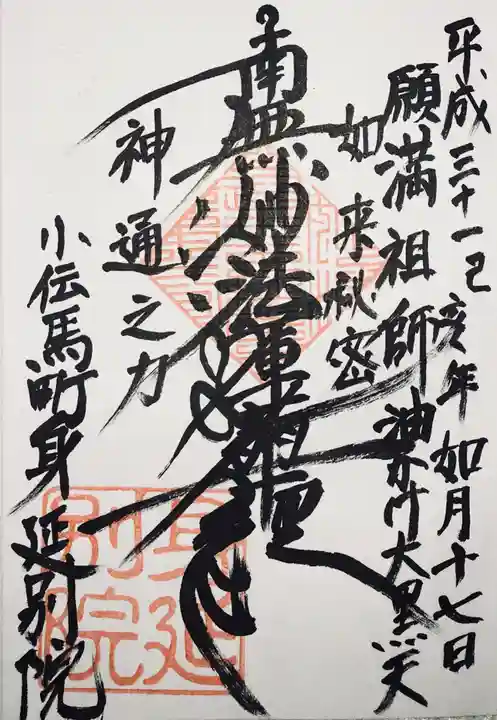 平成三十一己亥年如月十七日
願満祖師油かけ大黒天
如来秘密
南無妙法蓮華経
神通之力
小伝馬町身延別院
身延別院